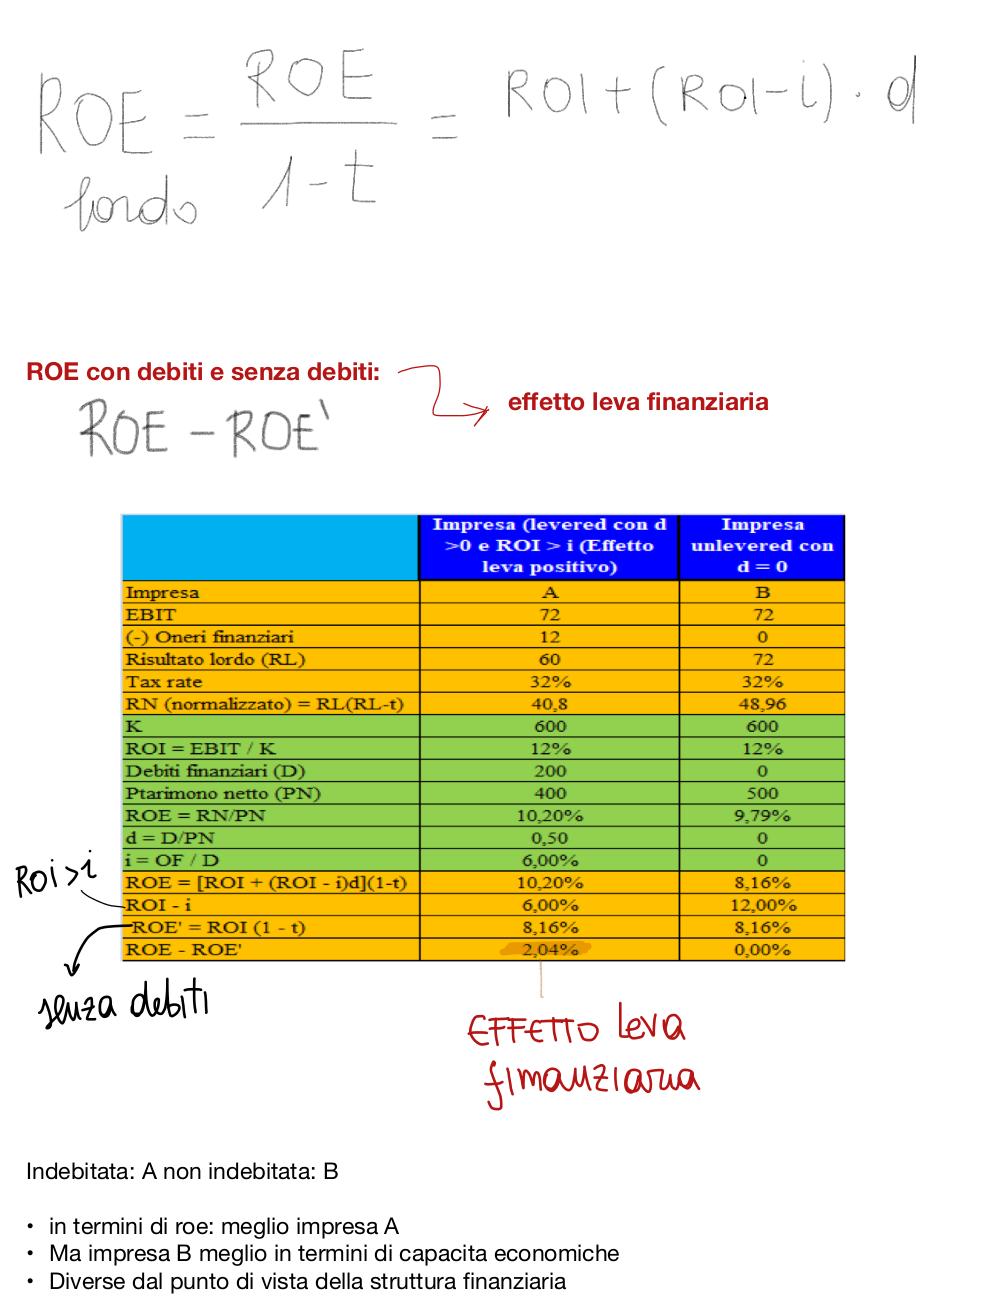 ROE lordo = ROE / 1-t = ROI + (ROI-i) · d
ROE con debiti e senza debiti:
effetto leva finanziaria
ROE - ROE'
Impresa (levered con d >0 e ROI > i (Effetto leva positivo) Impresa unlevered con d = 0
Impresa A B
EBIT 72 72
(-) Oneri finanziari 12 0
Risultato lordo (RL) 60 72
Tax rate 32% 32%
RN (normalizzato) = RL(RL-t) 40,8 48,96
K 600 600
ROI = EBIT / K 12% 12%
Debiti finanziari (D) 200 0
Ptarimono netto (PN) 400 500
ROE = RN/PN 10,20% 9,79%
d = D/PN 0,50 0
i = OF / D 6,00% 0
ROI > i
ROE = [ROI + (ROI - i)d](1-t) 10,20% 8,16%
ROI - i 6,00% 12,00%
ROE' = ROI (1 - t) 8,16% 8,16%
ROE - ROE' 2,04% 0,00%
senza debiti
EFFETTO leva
finanziaria
Indebitata: A non indebitata: B
• in termini di roe: meglio impresa A
• Ma impresa B meglio in termini di capacita economiche
• Diverse dal punto di vista della struttura finanziaria